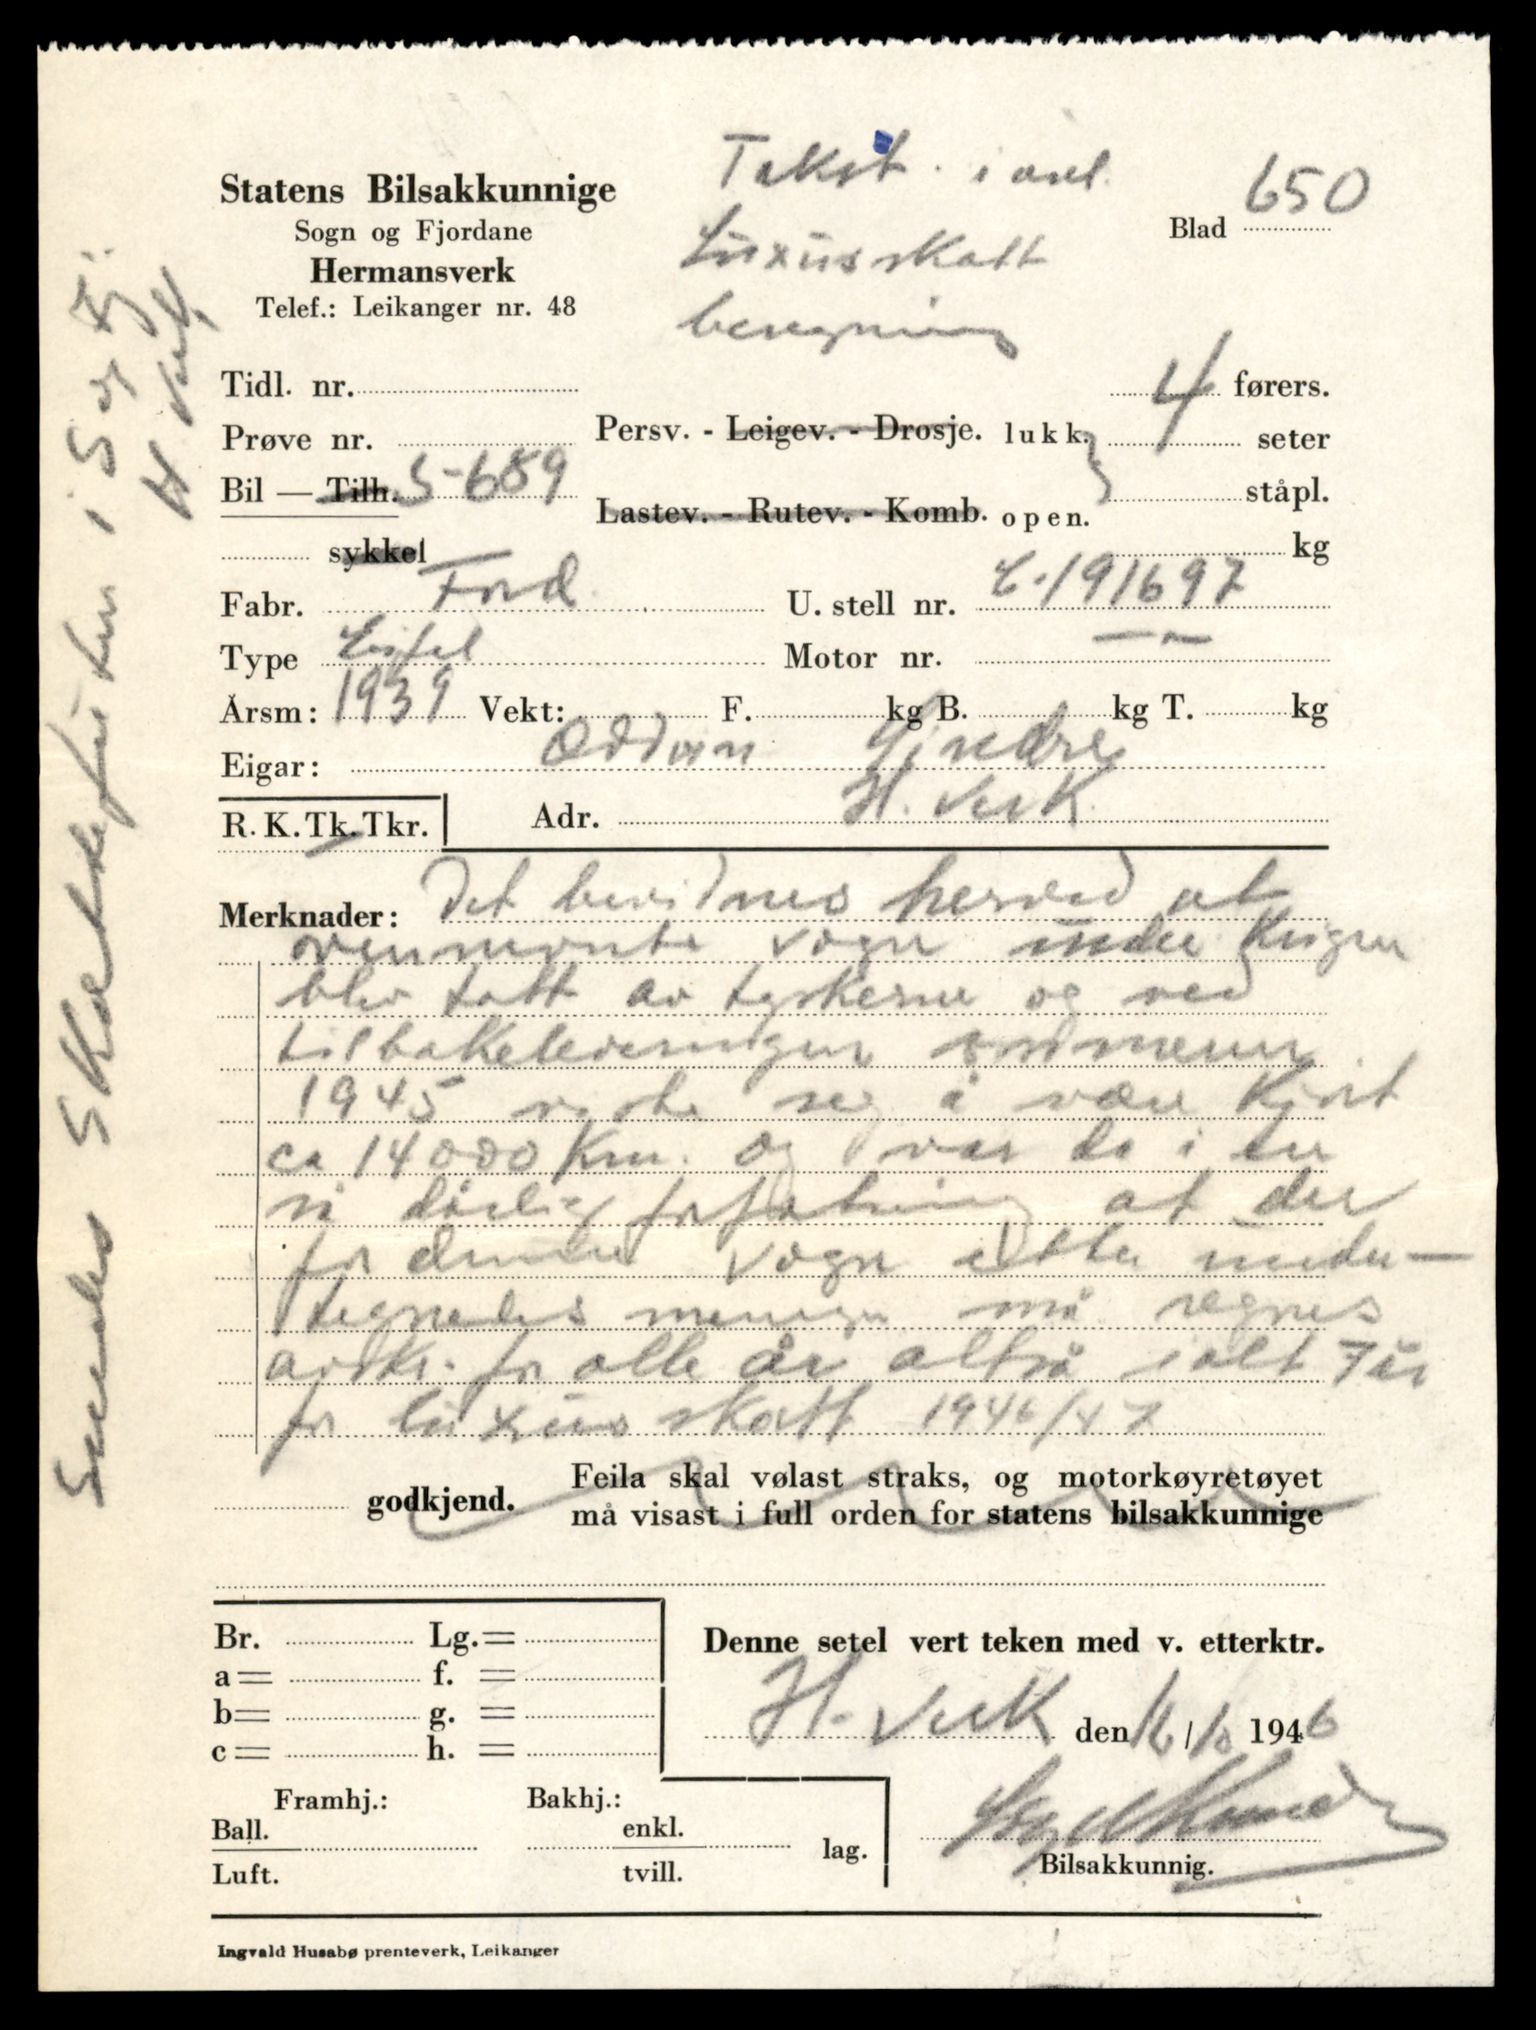 Statens Bilsakkunnige
Sogn og Fjordane
Hermansverk
Telef.: Leikanger nr. 48
Takst. i anl.
Luxusskatt
beregning
Blad 650
Tidl. nr.
Prøve nr.
Bil — Tilh. S-689
sykkel
Persv. - Leigev. - Drosje. lukk.
Lastev. - Rutev. - Komb. open.
førers.
4 seter
ståpl.
kg
Fabr. Ford
U. stell nr. C-191697
Type Eifel
Motor nr. — " —
Årsm: 1939 Vekt: F. kg B. kg T. kg
Eigar: Oddvin Sindre
R. K. Tk. Tkr. Adr. H. verk
Merknader: Det bevidnes herved at
ovennevnte vogn under krigen
blev tatt av tyskerne og ved
tilbakeleveringen sommeren
1945 viste seg å være kjørt
ca 14000 km. og var da i en
så dårlig forfatning at der
for denne vogn etter under-
tegnedes mening må regnes
avskr. for alle år altså ialt 7 år
for luxusskatt 1946/47
godkjend.
Feila skal vølast straks, og motorkøyretøyet
må visast i full orden for statens bilsakkunnige
Br. Lg.=
a= f. =
b= g. =
c= h. =
Denne setel vert teken med v. etterktr.
H. verk den 16/10 1946
Framhj.: Bakhj.:
Ball. enkl.
Luft. tvill.
lag.
Bilsakkunnig.
Ingvald Husabø prenteverk, Leikanger
Sendes Skattefuten i S og Fj.
H. verk